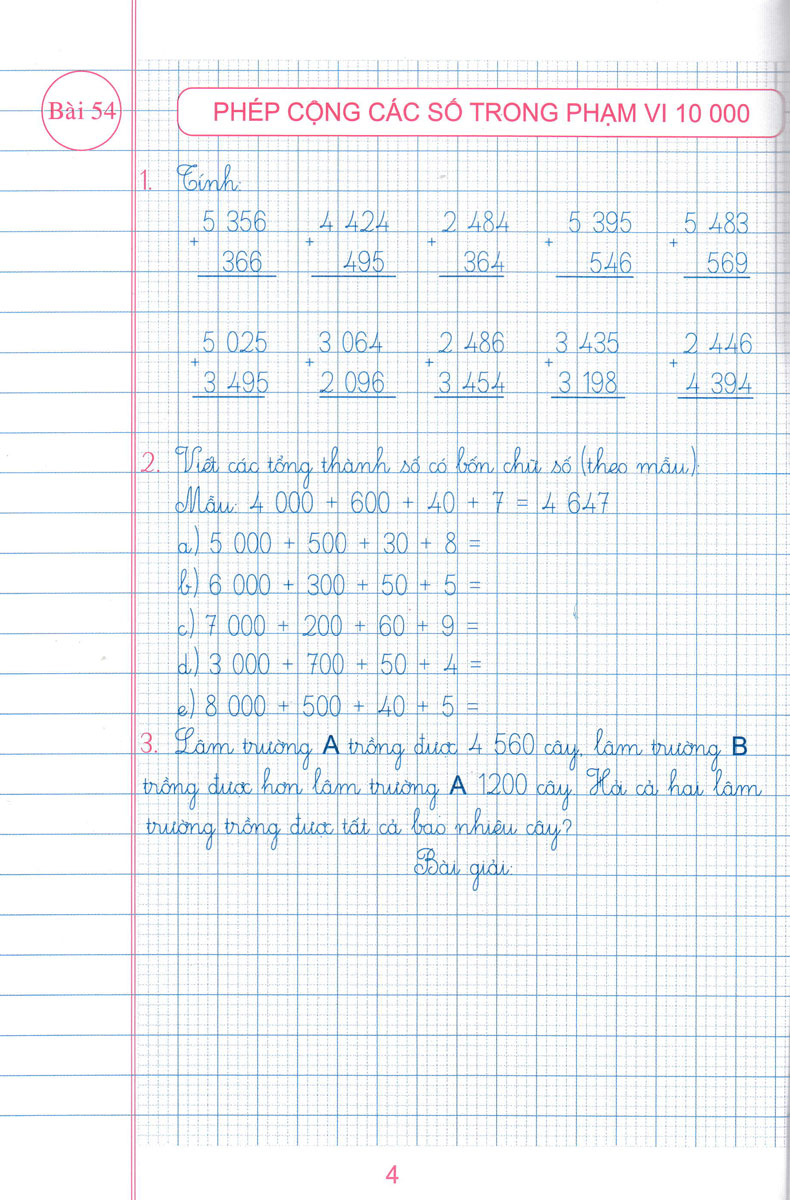 Bài 54
PHÉP CỘNG CÁC SỐ TRONG PHẠM VI 10 000
1. Tính:
5 356 4 424 2 484 5 395 5 483
+ + + + +
366 495 364 546 569
5 025 3 064 2 486 3 435 2 446
+ + + + +
3 495 2 096 3 454 3 198 4 394
2. Viết các tổng thành số có bốn chữ số (theo mẫu):
Mẫu: 4 000 + 600 + 40 + 7 = 4 647
a) 5 000 + 500 + 30 + 8 =
b) 6 000 + 300 + 50 + 5 =
c) 7 000 + 200 + 60 + 9 =
d) 3 000 + 700 + 50 + 4 =
e) 8 000 + 500 + 40 + 5 =
3. Lâm trường A trồng được 4 560 cây, lâm trường B
trồng được hơn lâm trường A 1200 cây. Hỏi cả hai lâm
trường trồng được tất cả bao nhiêu cây?
Bài giải:
4